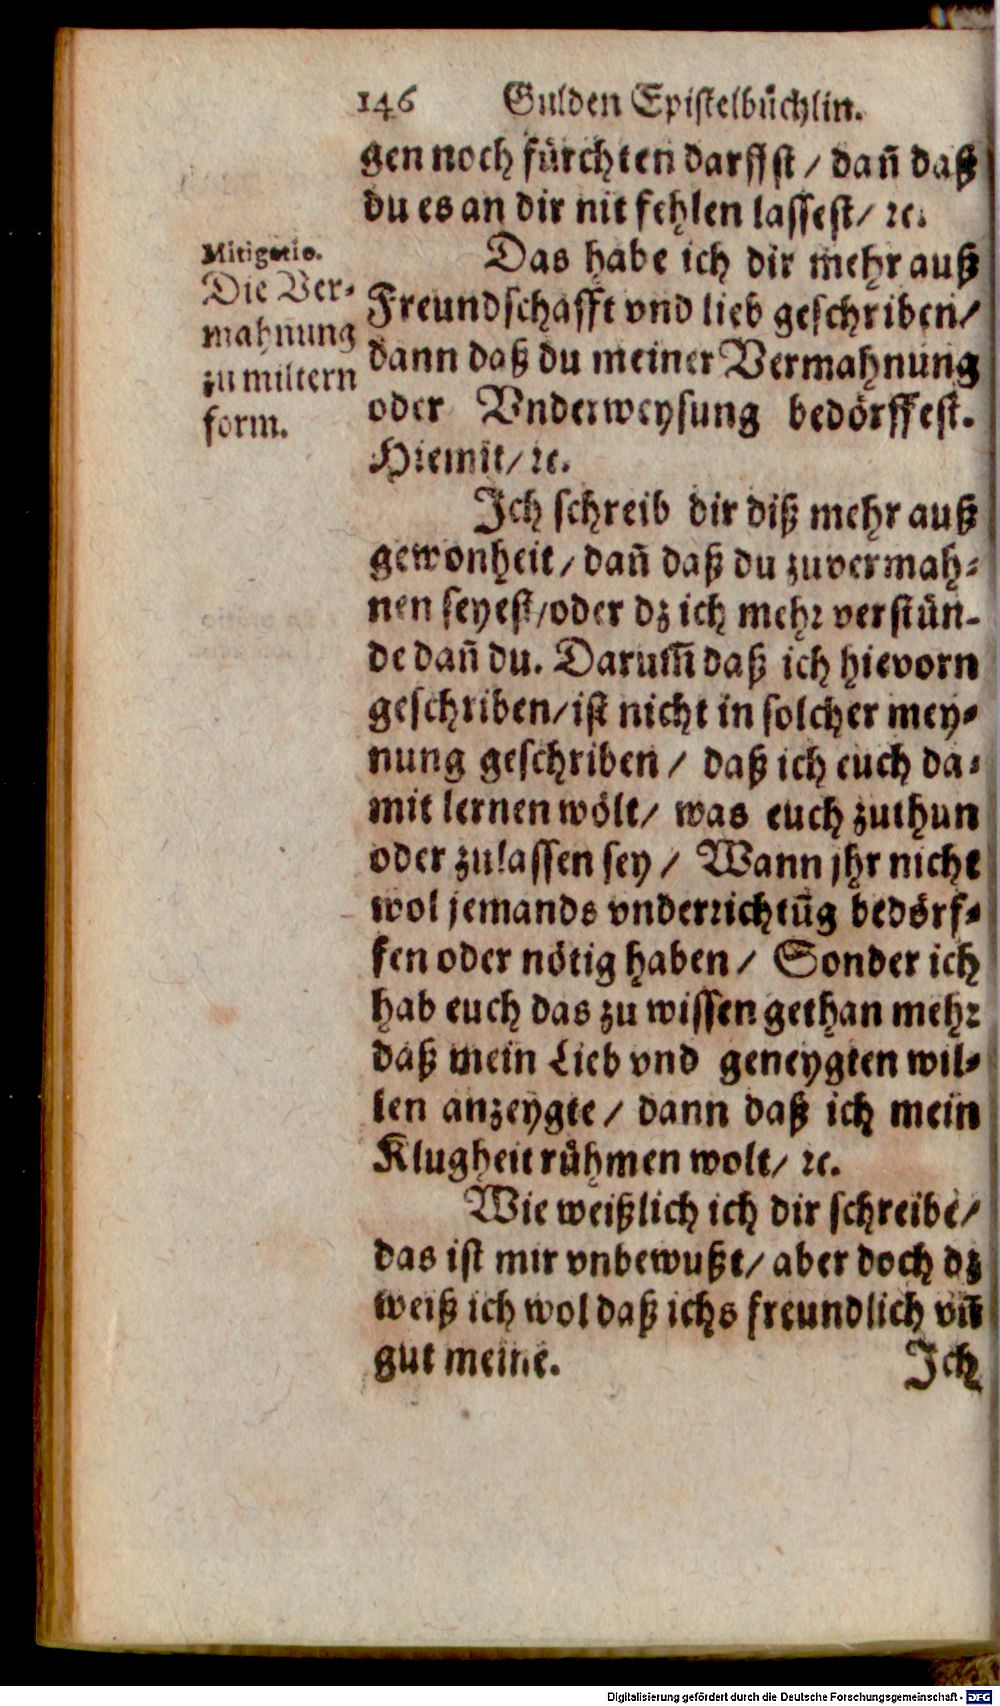 146 Gulden Epistelbüchlin.
gen noch fürchten darffst / dañ daß
du es an dir nit fehlen lassest / ꝛc.
Mitigatio.
Die Ver-
mahnung
zu miltern
form.
Das habe ich dir mehr auß
Freundschafft vnd lieb geschriben /
dann daß du meiner Vermahnung
oder Vnderweysung bedörffest.
Hiemit / ꝛc.
Ich schreib dir diß mehr auß
gewonheit / dañ daß du zuvermah-
nen seyest / oder dz ich mehr verstün-
de dañ du. Darum̃ daß ich hievorn
geschriben / ist nicht in solcher mey-
nung geschriben / daß ich euch da-
mit lernen wölt / was euch zuthun
oder zulassen sey / Wann jhr nicht
wol jemands vnderrichtũg bedörf-
fen oder nötig haben / Sonder ich
hab euch das zu wissen gethan mehr
daß mein Lieb vnd geneygten wil-
len anzeygte / dann daß ich mein
Klugheit rühmen wolt / ꝛc.
Wie weißlich ich dir schreibe /
das ist mir vnbewußt / aber doch dz
weiß ich wol daß ichs freundlich vñ
gut meine. Ich
Digitalisierung gefördert durch die Deutsche Forschungsgemeinschaft - DFG